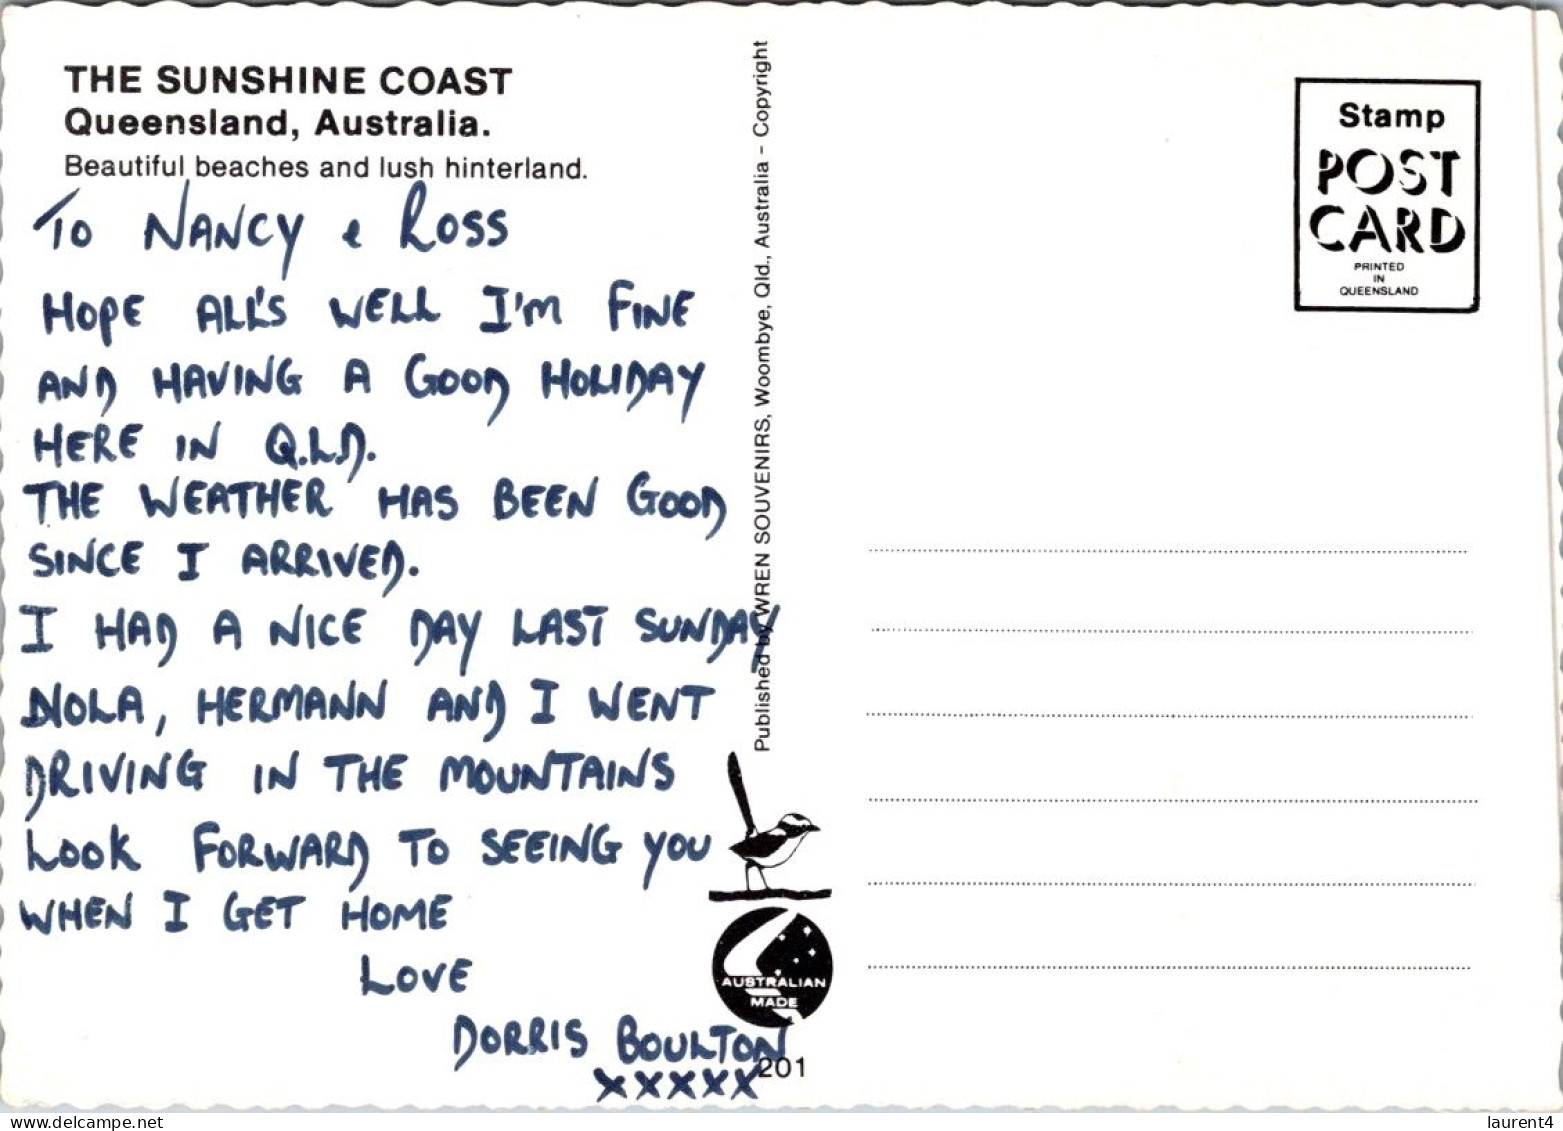 THE SUNSHINE COAST
Queensland, Australia.
Beautiful beaches and lush hinterland.
TO NANCY & ROSS
HOPE ALL'S WELL I'M FINE
AND HAVING A GOOD HOLIDAY
HERE IN Q.L.D.
THE WEATHER HAS BEEN GOOD
SINCE I ARRIVED.
I HAD A NICE DAY LAST SUNDAY
NOLA, HERMANN AND I WENT
DRIVING IN THE MOUNTAINS
LOOK FORWARD TO SEEING YOU
WHEN I GET HOME
LOVE
DORRIS BOULTON
XXXXX
Published by WREN SOUVENIRS, Woombye, Qld., Australia - Copyright
AUSTRALIAN
MADE
201
Stamp
POST
CARD
PRINTED
IN
QUEENSLAND
laurent4